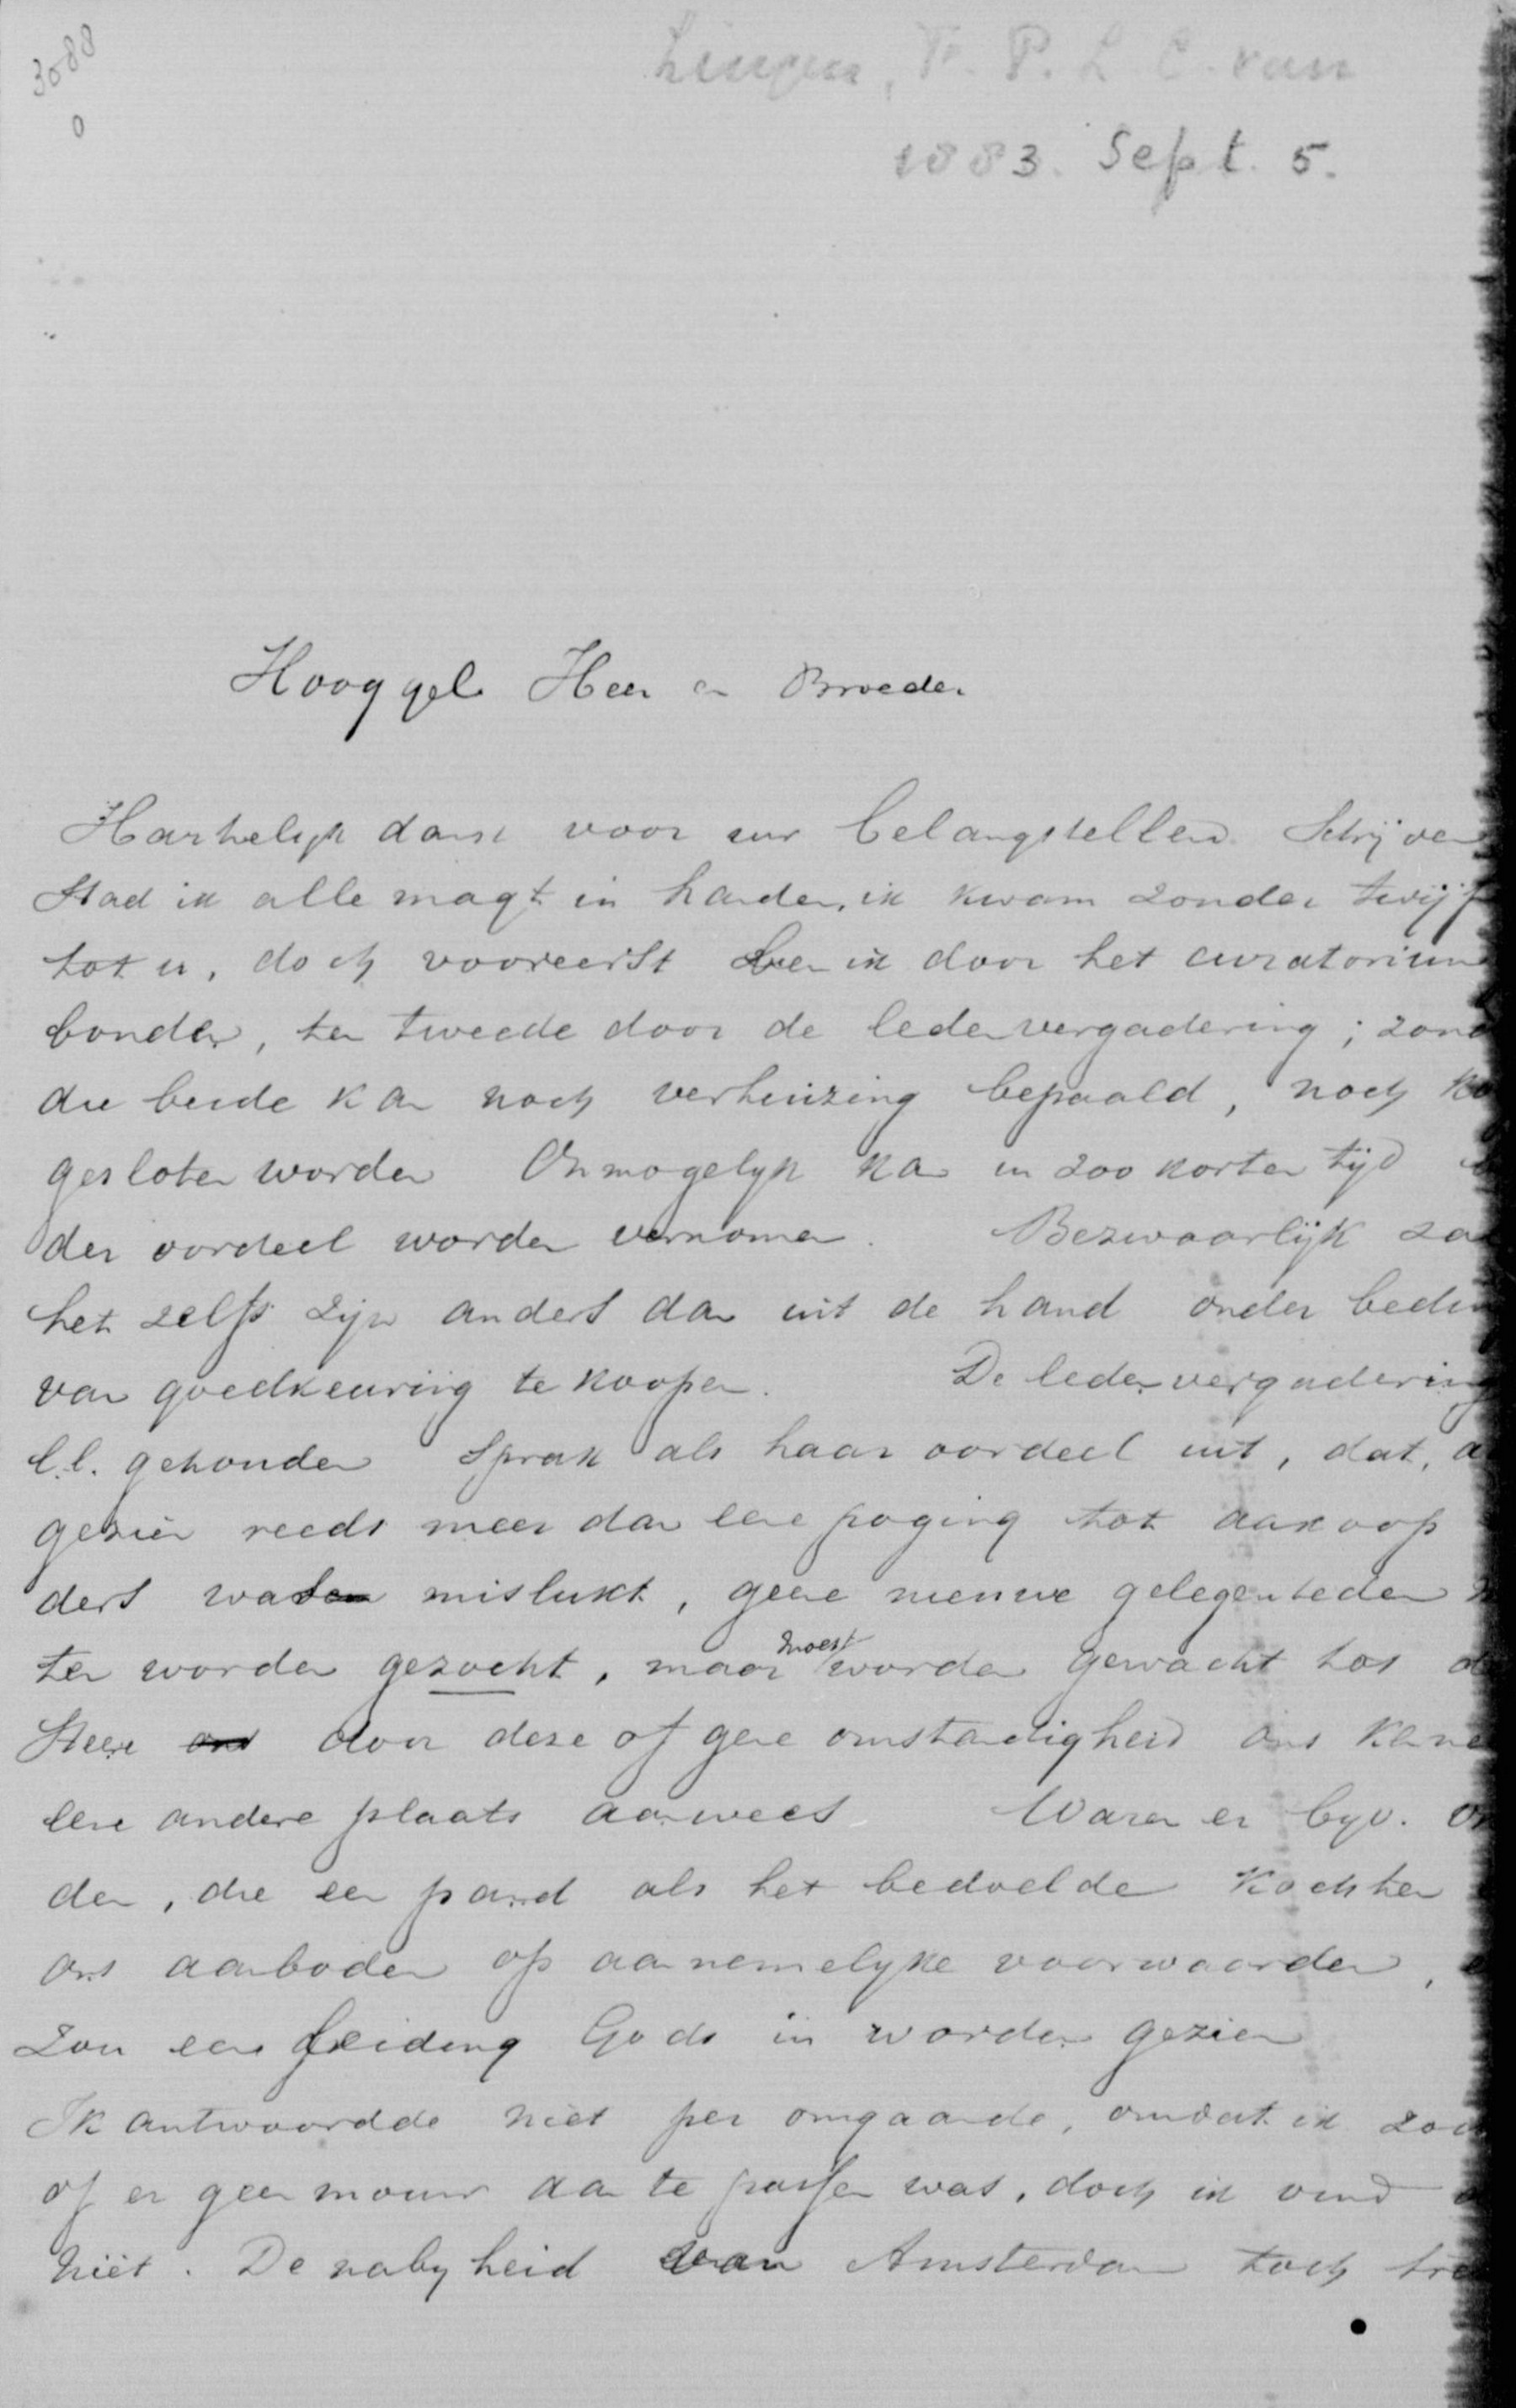 3088
0
Lingen, F. P. L. C. van
1883. Sept. 5.
Hooggel Heer en Broeder
Hartelijk dank voor uw belangstellend Schrijven
Had ik alle magt in handen, ik kwam zonder twijf
tot u, doch vooreerst ben ik door het curatorium
bonden, ten tweede door de ledenvergadering; zond
die beide kan noch verhuizing bepaald, noch ko
gesloten worden Onmogelijk kan in zoo korten tijd
der oordeel worden vernomen. Bezwaarlijk zal
het zelfs zijn anders dan uit de hand onder bedin
van goedkeuring te koopen. De ledenvergadering
l.l. gehouden sprak als haar oordeel uit, dat, a
gezien reeds meer dan eene poging tot aankoop
ders was mislukt, geene nieuwe gelegenheden
ten worden gezocht, maar moest worden gewacht tot d
Heere ons door deze of gene omstandigheid ons kenne
eene andere plaats aanwees Waren er bijv.
den, die een pand als het bedoelde kochten
ons aanboden op aannemelijke voorwaarden,
zou eene leiding Gods in worden gezien
Ik antwoordde niet per omgaande, omdat ik zoch
of er geen mouw aan te passen was, doch ik vind
niet. De nabijheid van Amsterdam toch tre